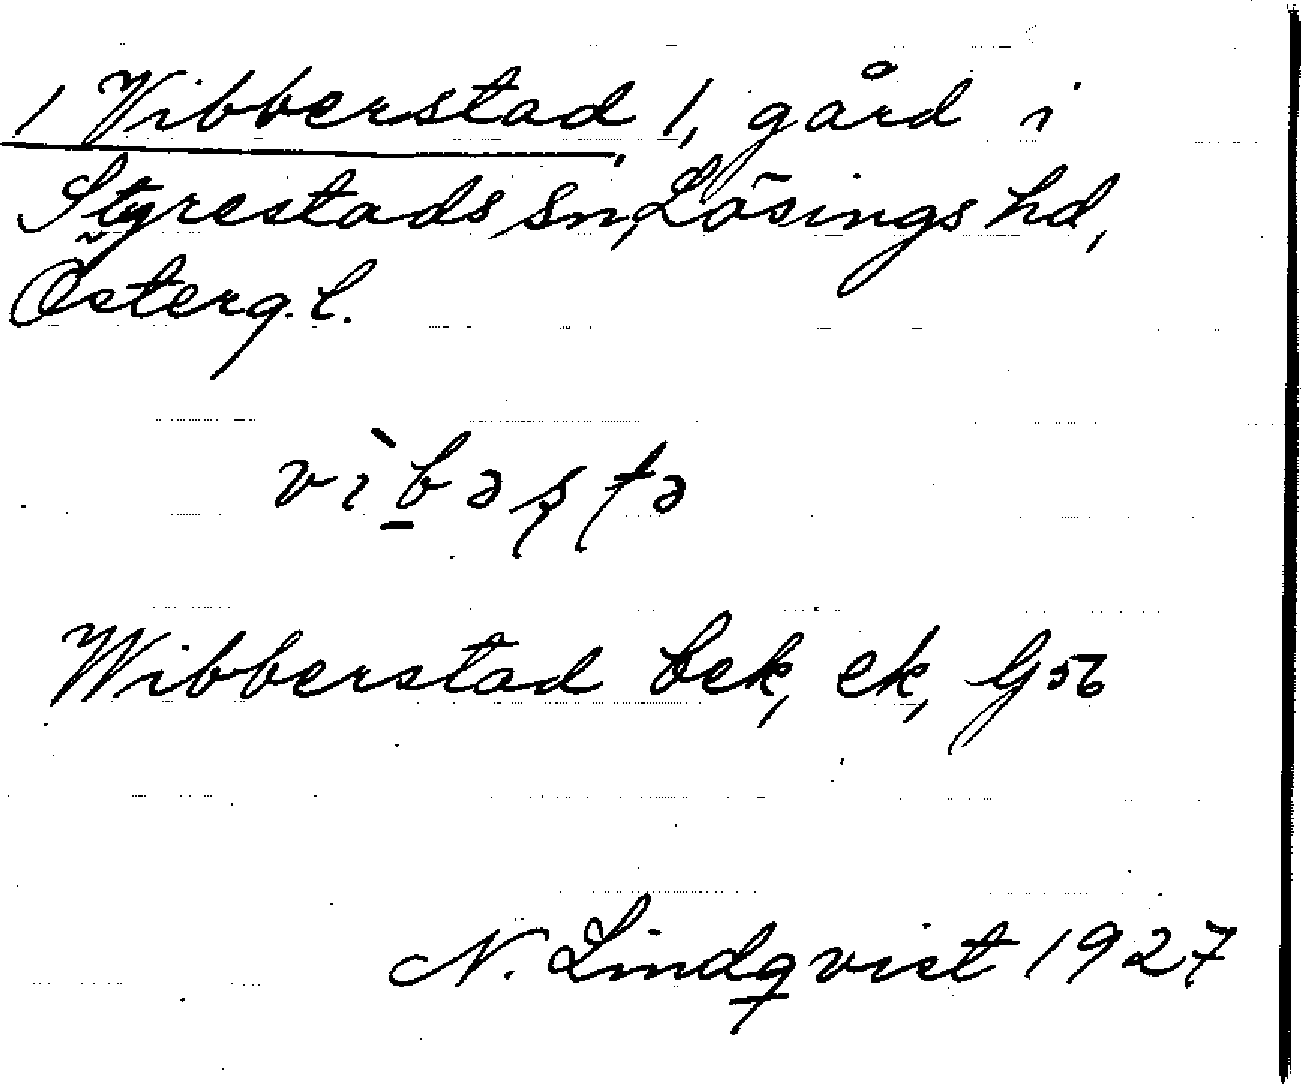 / Vibberstad /, gård i
Styrestads sn, Lösings hd,
Österg. l.
vìbəṣṭə
Wibberstad bek, ek, G56
N. Lindqvist 1927